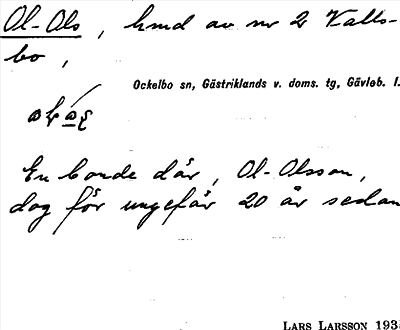 Ol-Ols, hmd av nr 2 Valls-
bo,
Ockelbo sn, Gästriklands v. doms. tg, Gävleb. l.
En bonde där, Ol-Olsson,
dog för ungefär 20 år sedan
LARS LARSSON 193